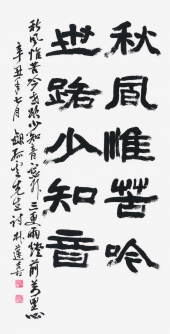 秋風惟苦吟
世路少知音
秋風惟苦吟世路少知音窗外三更雨燈前萬里心
辛丑年七月 錄孤雲先生詩 朴蓮喜